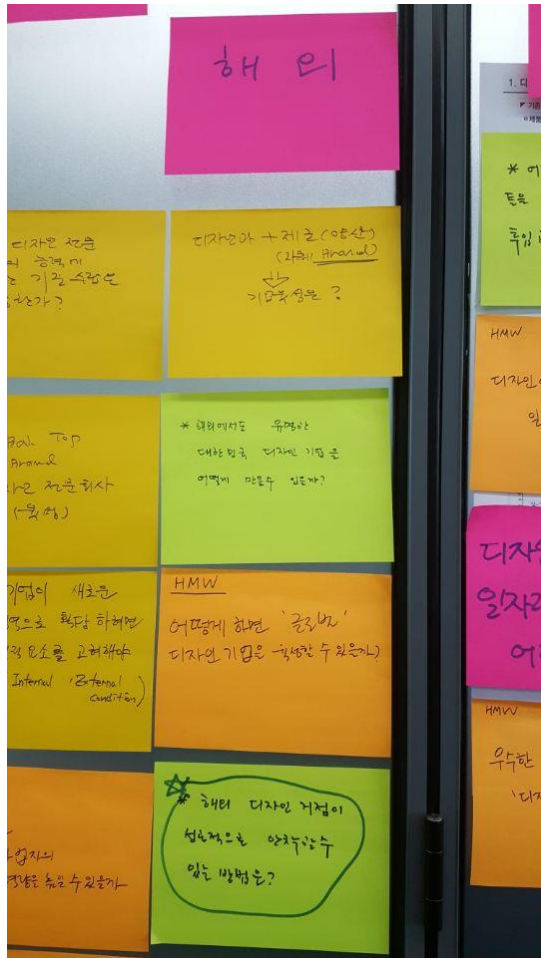 해외
디자인 전문
능력에
기준 수립은
한가?
디자인과 + 제조(양산)
(자체 Brand)
기업육성은?
Top
Brand
자인 전문회사
(육성)
* 해외에서도 유명한
대한민국 디자인 기업을
어떻게 만들수 있을까?
기업이 새로운
역으로 확장 하려면
요소를 고려해야
Internal · External
Condition)
HMW
어떻게 하면 '글로벌'
디자인 기업을 육성할 수 있을까?
업자의
역량을 높일 수 있을까
* 해외 디자인 거점이
성공적으로 안착할수
있는 방법은?
1. 디
* 어
트를
투입
HMW
디자인
일
디자인
일자리
어
HMW
우수한
'디자